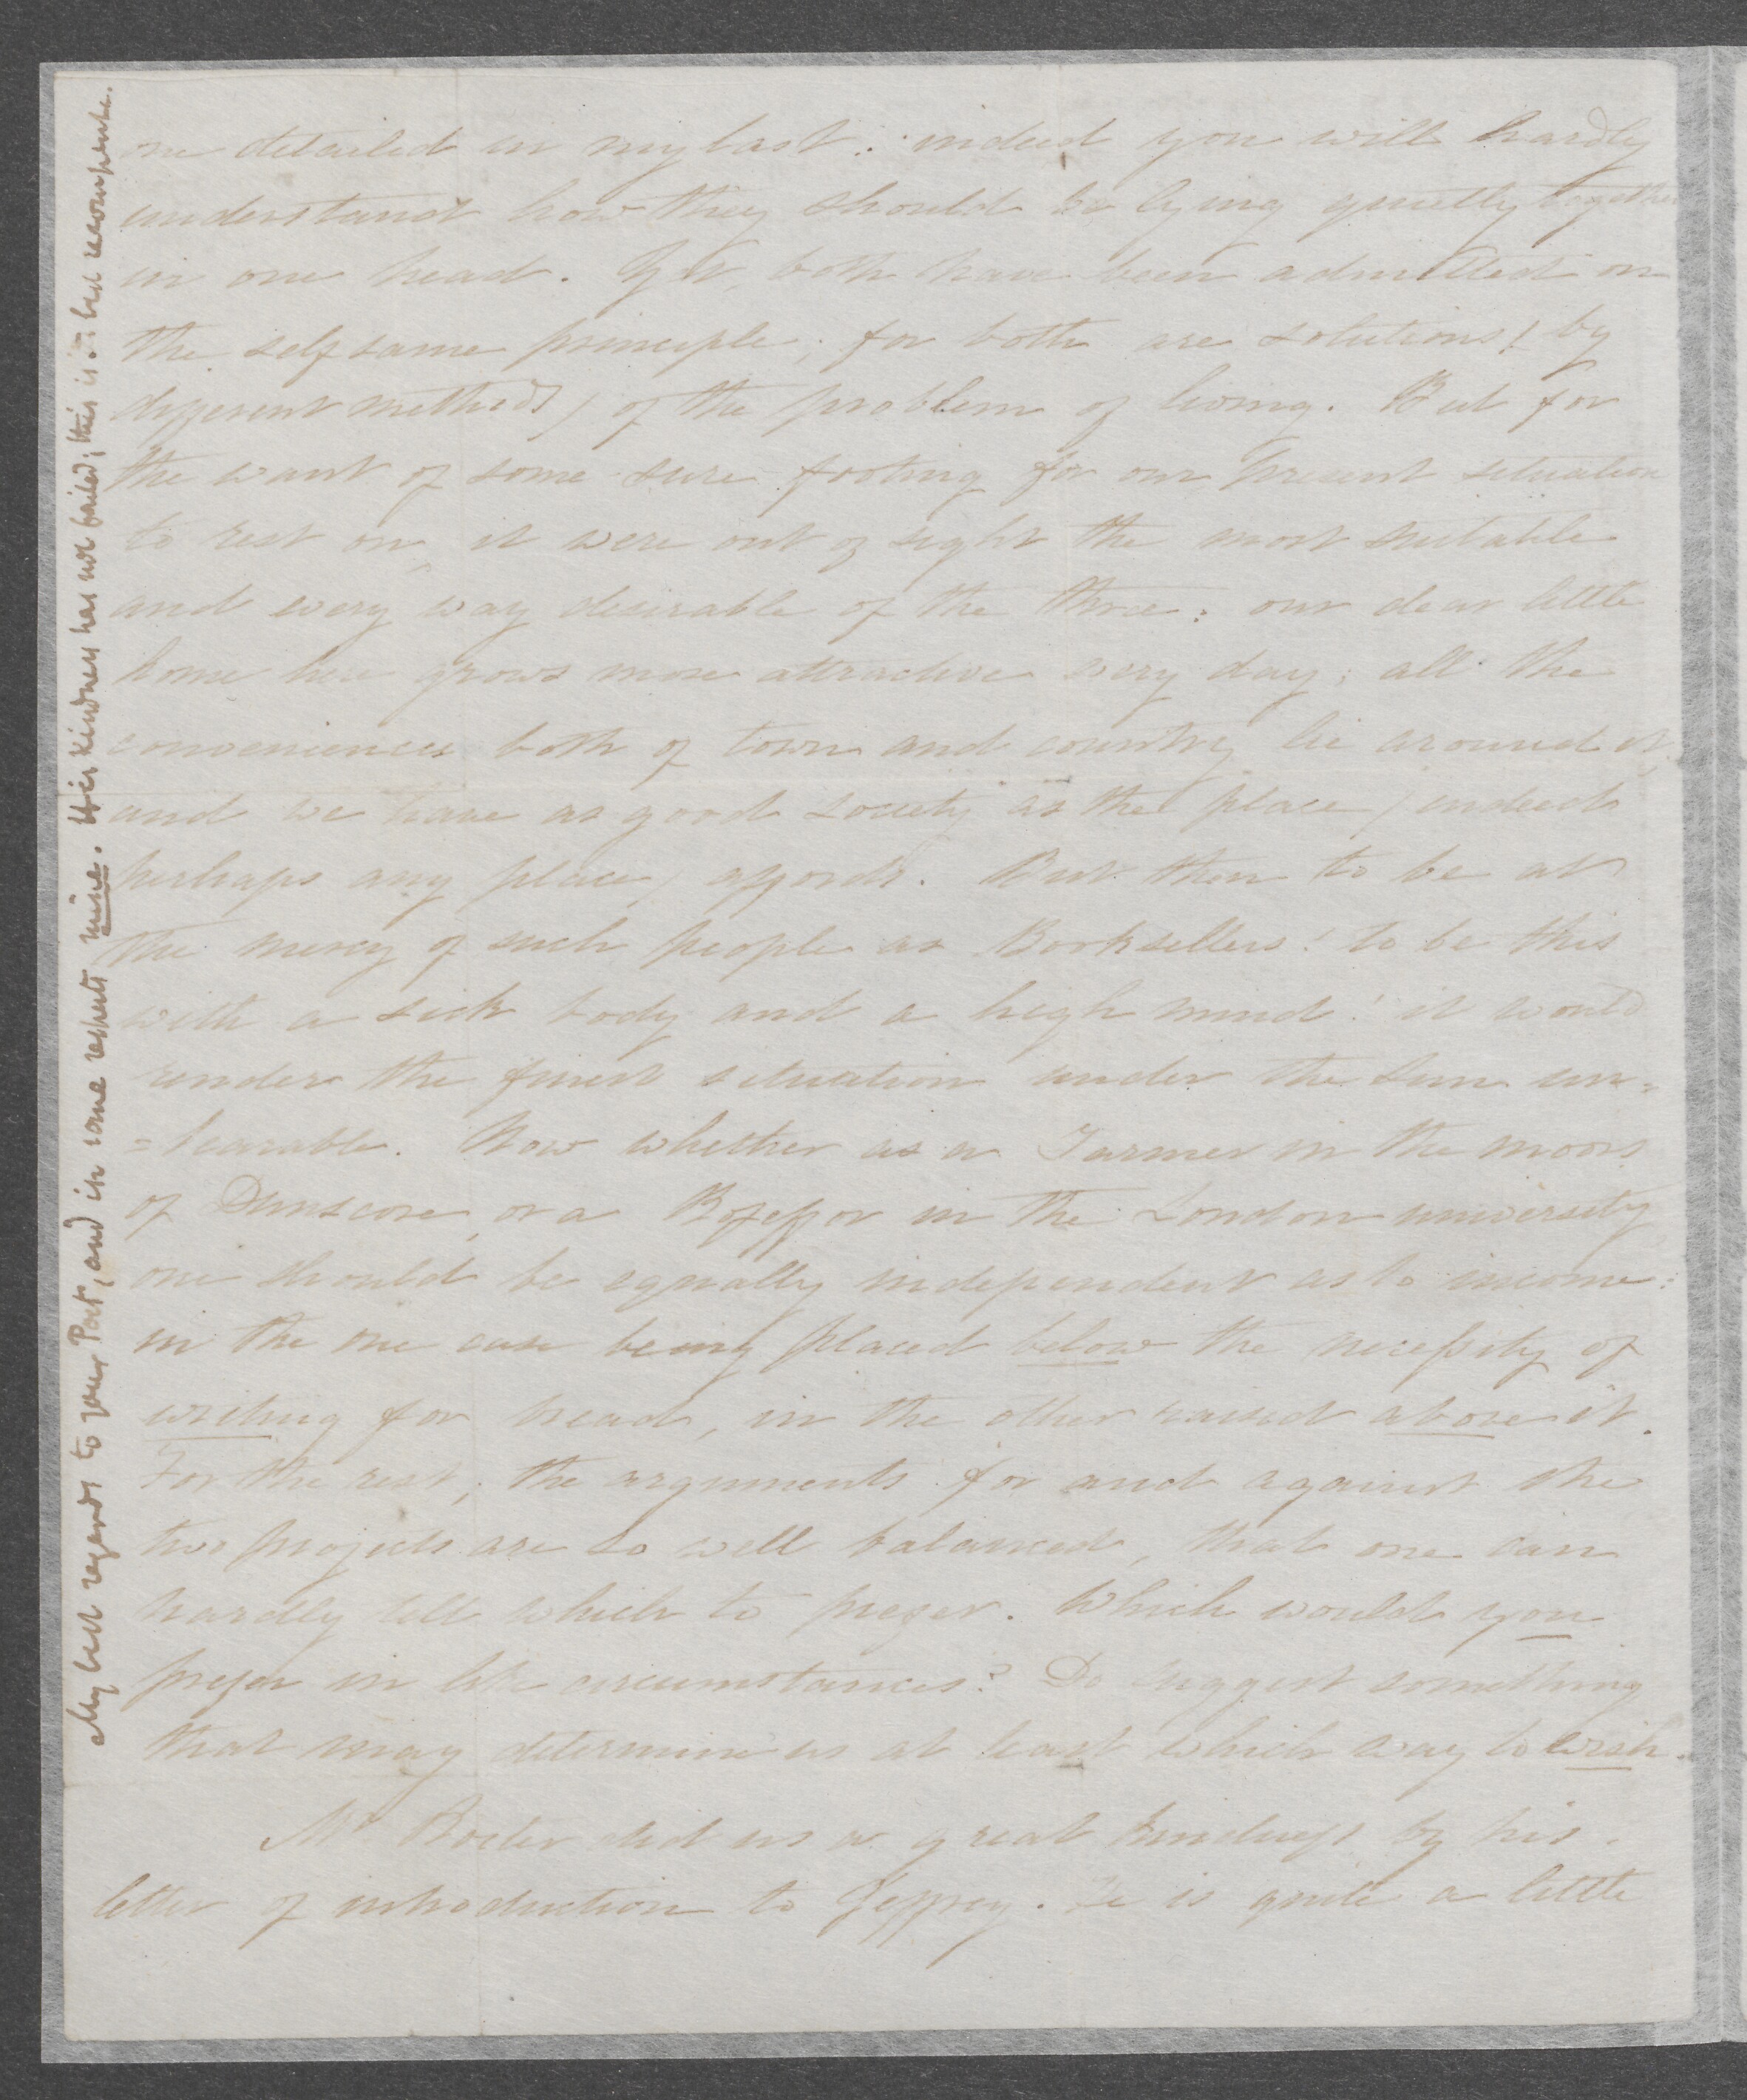 one detailed in my last: indeed you will hardly
understand how they should be lying quietly together
in one head. Yet, both have been admitted on
the selfsame principle; for both are solutions (by
different methods) of the problem of living. But for
the want of some sure footing for our present situation
to rest on, it were out of sight the most suitable
and every way desirable of the three: our dear little
home here grows more attractive every day; all the
conveniences both of town and country lie around it,
and we have as good society as the place (indeed
perhaps any place) affords. But then to be at
the mercy of such people as Booksellers! to be this
with a sick body and a high mind! it would
render the finest situation under the sun un=
=bearable. Now whether as a Farmer in the moors
of Dunscore, or a Professor in the London university
one should be equally independent as to income:
in the one case being placed below the necessity of
writing for bread, in the other raised above it.
For the rest, the arguments for and against the
two projects are so well balanced, that one can
hardly tell which to prefer. Which would you
prefer in like circumstances? Do suggest something
that may determine us at least which way to wish.
Mr Procter did us a great kindness by his
letter of introduction to Jeffrey. He is quite a little
My best regards to your Poet, and in some respects mine. His kindness has not failed; this is its best recompense.